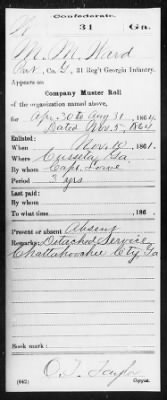 Confederate.
W 31 Ga.
M. M. Ward
Pvt., Co. G, 31 Reg't Georgia Infantry.
Appears on
Company Muster Roll
of the organization named above,
for Apr. 30 to Aug 31, 1864.
Dated Nov. 5, 1864
Enlisted:
When Nov. 10, 1861.
Where Cusseta Ga
By whom Capt.
Period 3 yrs
Last paid:
By whom
To what time , 186 .
Present or absent Absent
Remarks: Detached Service
Chattahoochee Cty Ga
Book mark:
O. T. Taylor
(642) Copyist.